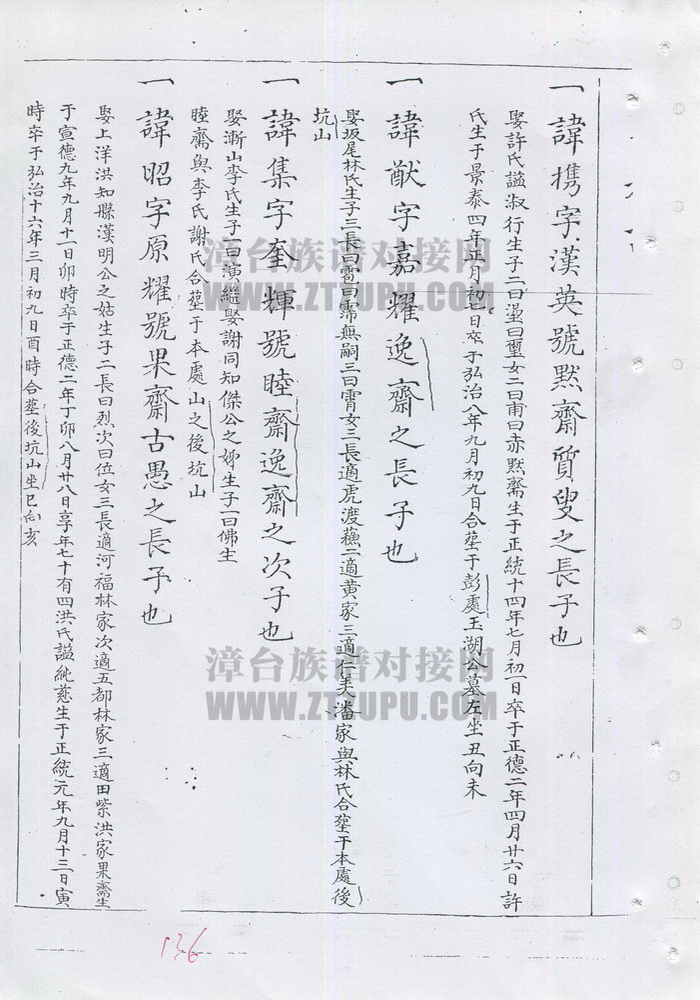 一諱携字漢英號黙齋質叟之長子也
娶許氏謚淑行生子二曰曰璽女二曰甫曰赤黙齋生于正統十四年七月初一日卒于正德二年四月廿六日許
氏生于景泰四年正月初七日卒于弘治八年九月初九日合塟于彭處玉湖公墓左坐丑向未
一諱猷字嘉耀逸齋之長子也
娶坂尾林氏生子三長曰雹曰霈無嗣三曰霄女三長適虎渡蘓二適黄家三適仁美潘家與林氏合塟于本處後
坑山
一諱集字奎輝號睦齋逸齋之次子也
娶漸山李氏生子一曰演繼娶謝同知傑公之姊生子一曰佛生
睦齋與李氏謝氏合塟于本處山之後坑山
一諱昭字原耀號果齋古愚之長子也
娶上洋洪知縣漢明公之姑生子二長曰烈次曰位女三長適河福林家次適五都林家三適田紫洪家果齋生
于宣德九年九月十一日卯時卒于正德二年丁卯八月廿八日享年七十有四洪氏謚純慈生于正統元年九月十三日寅
時卒于弘治十六年三月初九日酉時合墓後坑山坐巳向亥
漳台族谱对接网
WWW.ZTZUPU.COM
漳台族谱对接网
WWW.ZTZUPU.COM
136